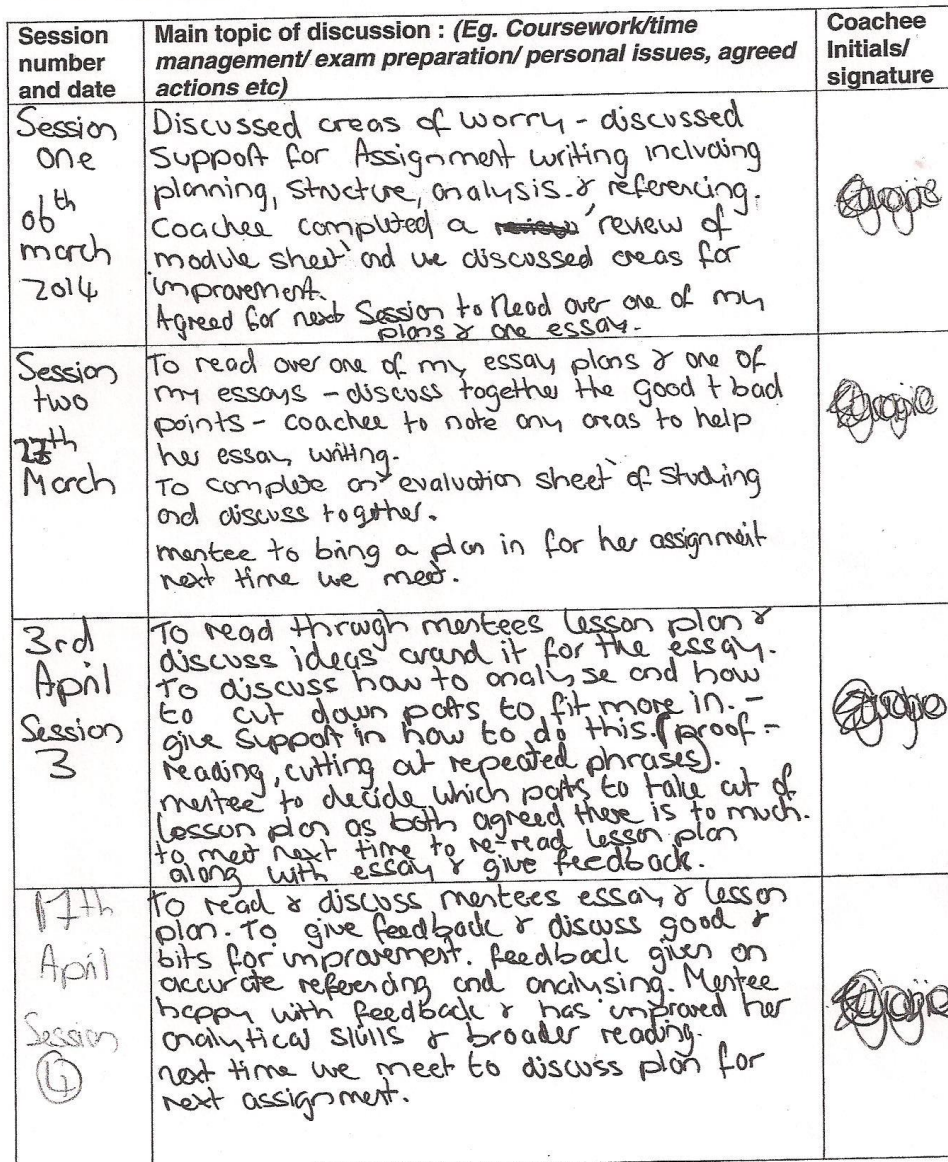 Session number and date
Main topic of discussion : (Eg. Coursework/time
management/ exam preparation/ personal issues, agreed
actions etc)
Coachee Initials/ signature
Session
one
06th
march
2014
Discussed areas of worry - discussed
Support for Assignment writing including
planning, structure, analysis & referencing.
Coachee completed a 'review of
module sheet' and we discussed areas for
improvement.
Agreed for next Session to Read over one of my
plans & one essay.
Session
two
27th
March
To read over one of my essay plans & one of
my essays - discuss together the good + bad
points - coachee to note any areas to help
her essay writing.
To complete an 'evaluation sheet' of studying
and discuss together.
mentee to bring a plan in for her assignment
next time we meet.
3rd
April
Session
3
To read through mentees lesson plan &
discuss ideas around it for the essay.
To discuss how to analyse and how
to cut down parts to fit more in. -
give support in how to do this. (proof -
reading, cutting out repeated phrases).
mentee to decide which parts to take out of
lesson plan as both agreed there is to much.
to meet next time to re-read lesson plan
along with essay & give feedback.
17th
April
Session
4
To read & discuss mentees essay & lesson
plan. To give feedback & discuss good &
bits for improvement. feedback given on
accurate referencing and analysing. Mentee
happy with feedback & has improved her
analytical skills & broader reading.
next time we meet to discuss plan for
next assignment.